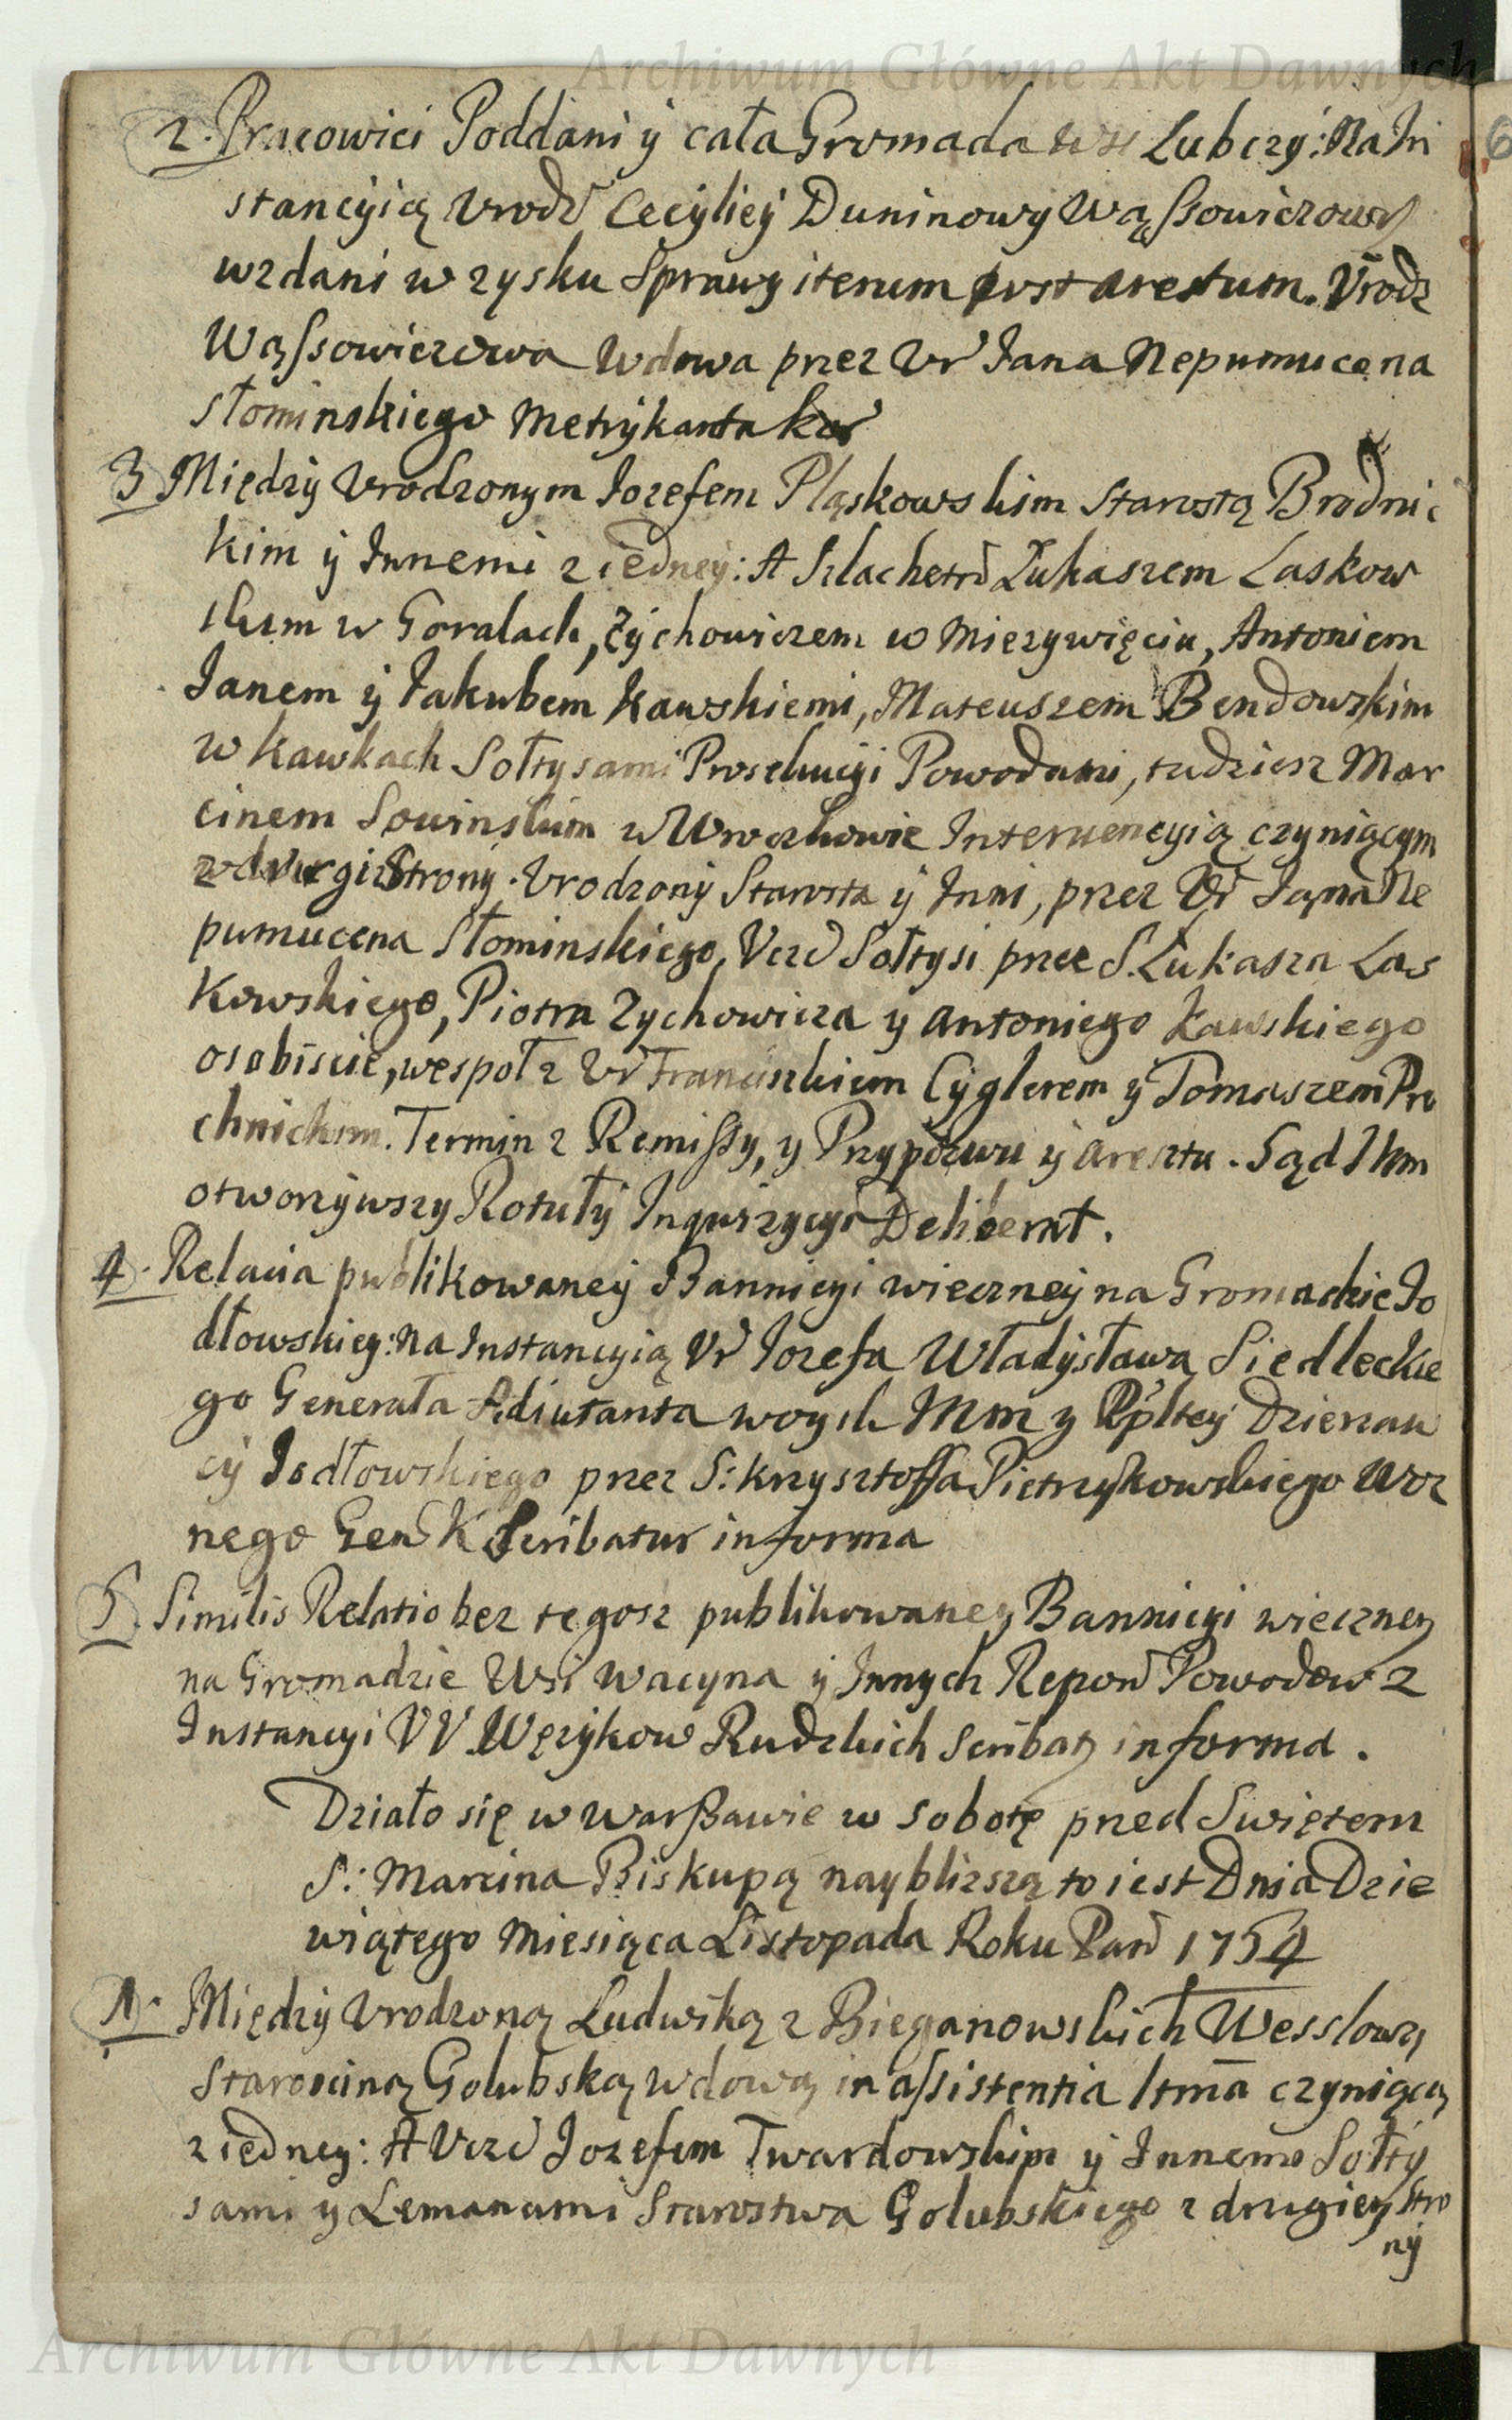 Archiwum Główne Akt Dawnych
2. Pracowici Poddani y cała Gromada wsi Lubczy: Na In
stancyią Urodz Cecyliey Duninowy Wąssowiczowey
wzdani w zysku Sprawy iterum post arestum. Urodz
Wąssowiczowa Wdowa przez Ur Jana Nepumucena
Słominskiego Metrykanta kor
3 Między Urodzonym Jozefem Pląskowskim Starostą Brodnic
kim y Innemi z iedney: A Szlachetn Łukaszem Laskow
skim w Goralach, Zychowiczem w Mierzywięciu, Antoniem
Janem y Jakubem Kawskiemi, Mateuszem Bendowskim
w Kawkach Sołtysami Prosekucyi Powodami, tudziesz Mar
cinem Sowinskim w Wrockowie Interwencyią czyniącym
z drugi Strony. Urodzony Starosta y Inni, przez Ur Jana Ne
pumucena Słominskiego, Ucz Sołtysi prze S. Łukasza Las
Kowskiego, Piotra Zychowicza y Antoniego Kawskiego
osobiscie, wespoł z Ur Franciszkiem Cyglerem y Tomaszem Pro
chnickim. Termin z Remissy, y Przypozwu y aresztu. Sąd JKm
otworzywszy Rotuły Inquizycyi Deliberat.
4. Relacia publikowaney Bannicyi wieczney na Gromadzie Jo
dłowskiey: Na Instancyią Ur Jozefa Władysława Siedleckie
go Generała Adiutanta woysk JKM y Rpltey Dzierzaw
cy Jodłowskiego przez S: Krzysztoffa Pietrzykowskiego Woz
nego Gen K Scribatur in forma
5. Similis Relatio bez tegosz publikowaney Bannicyi wieczney
na Gromadzie Wsi Wacyna y Innych Repon Powodow z
Instancyi UU Węzykow Rudzkich Scribat in forma.
Działo się w Warszawie w Sobotę przed Swiętem
S: Marcina Biskupą nayblizszą to iest Dnia Dzie
wiątego Miesiąca Listopada Roku Pan 1754
1. Między Urodzoną Ludwiką z Bieganowskich Wesslową
Starosciną Golubską Wdową in assistentia ltma czyniącą
z iedney: A Ucz Jozefem Twardowskim y Innemi Sołty
sami y Lemanami Starostwa Golubskiego z drugiey Stro
ny
Archiwum Główne Akt Dawnych